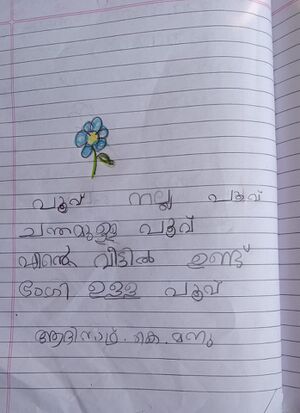 പൂവ് നല്ല പൂവ്
ചന്തമുള്ള പൂവ്
എന്റെ വീട്ടിൽ ഉണ്ട്
ഭംഗി ഉള്ള പൂവ്
കെ. മനു